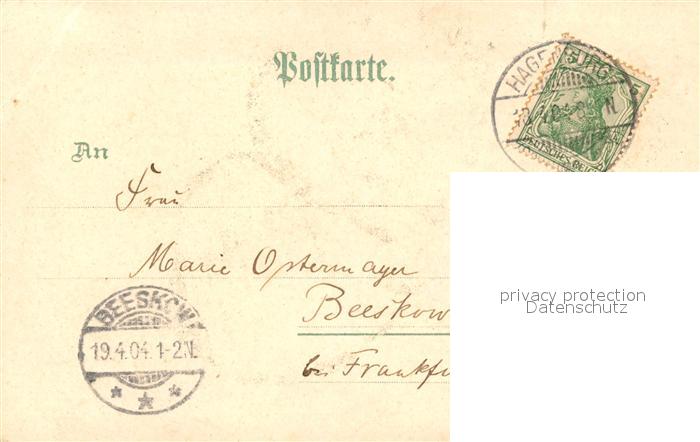 Postkarte.
HAGENBURG
DEUTSCHES REICH
An
Frau
Marie Ostermayer
Beeskow
bei Frankfu
BEESKOW
19.4.04.1-2N.
privacy protection
Datenschutz